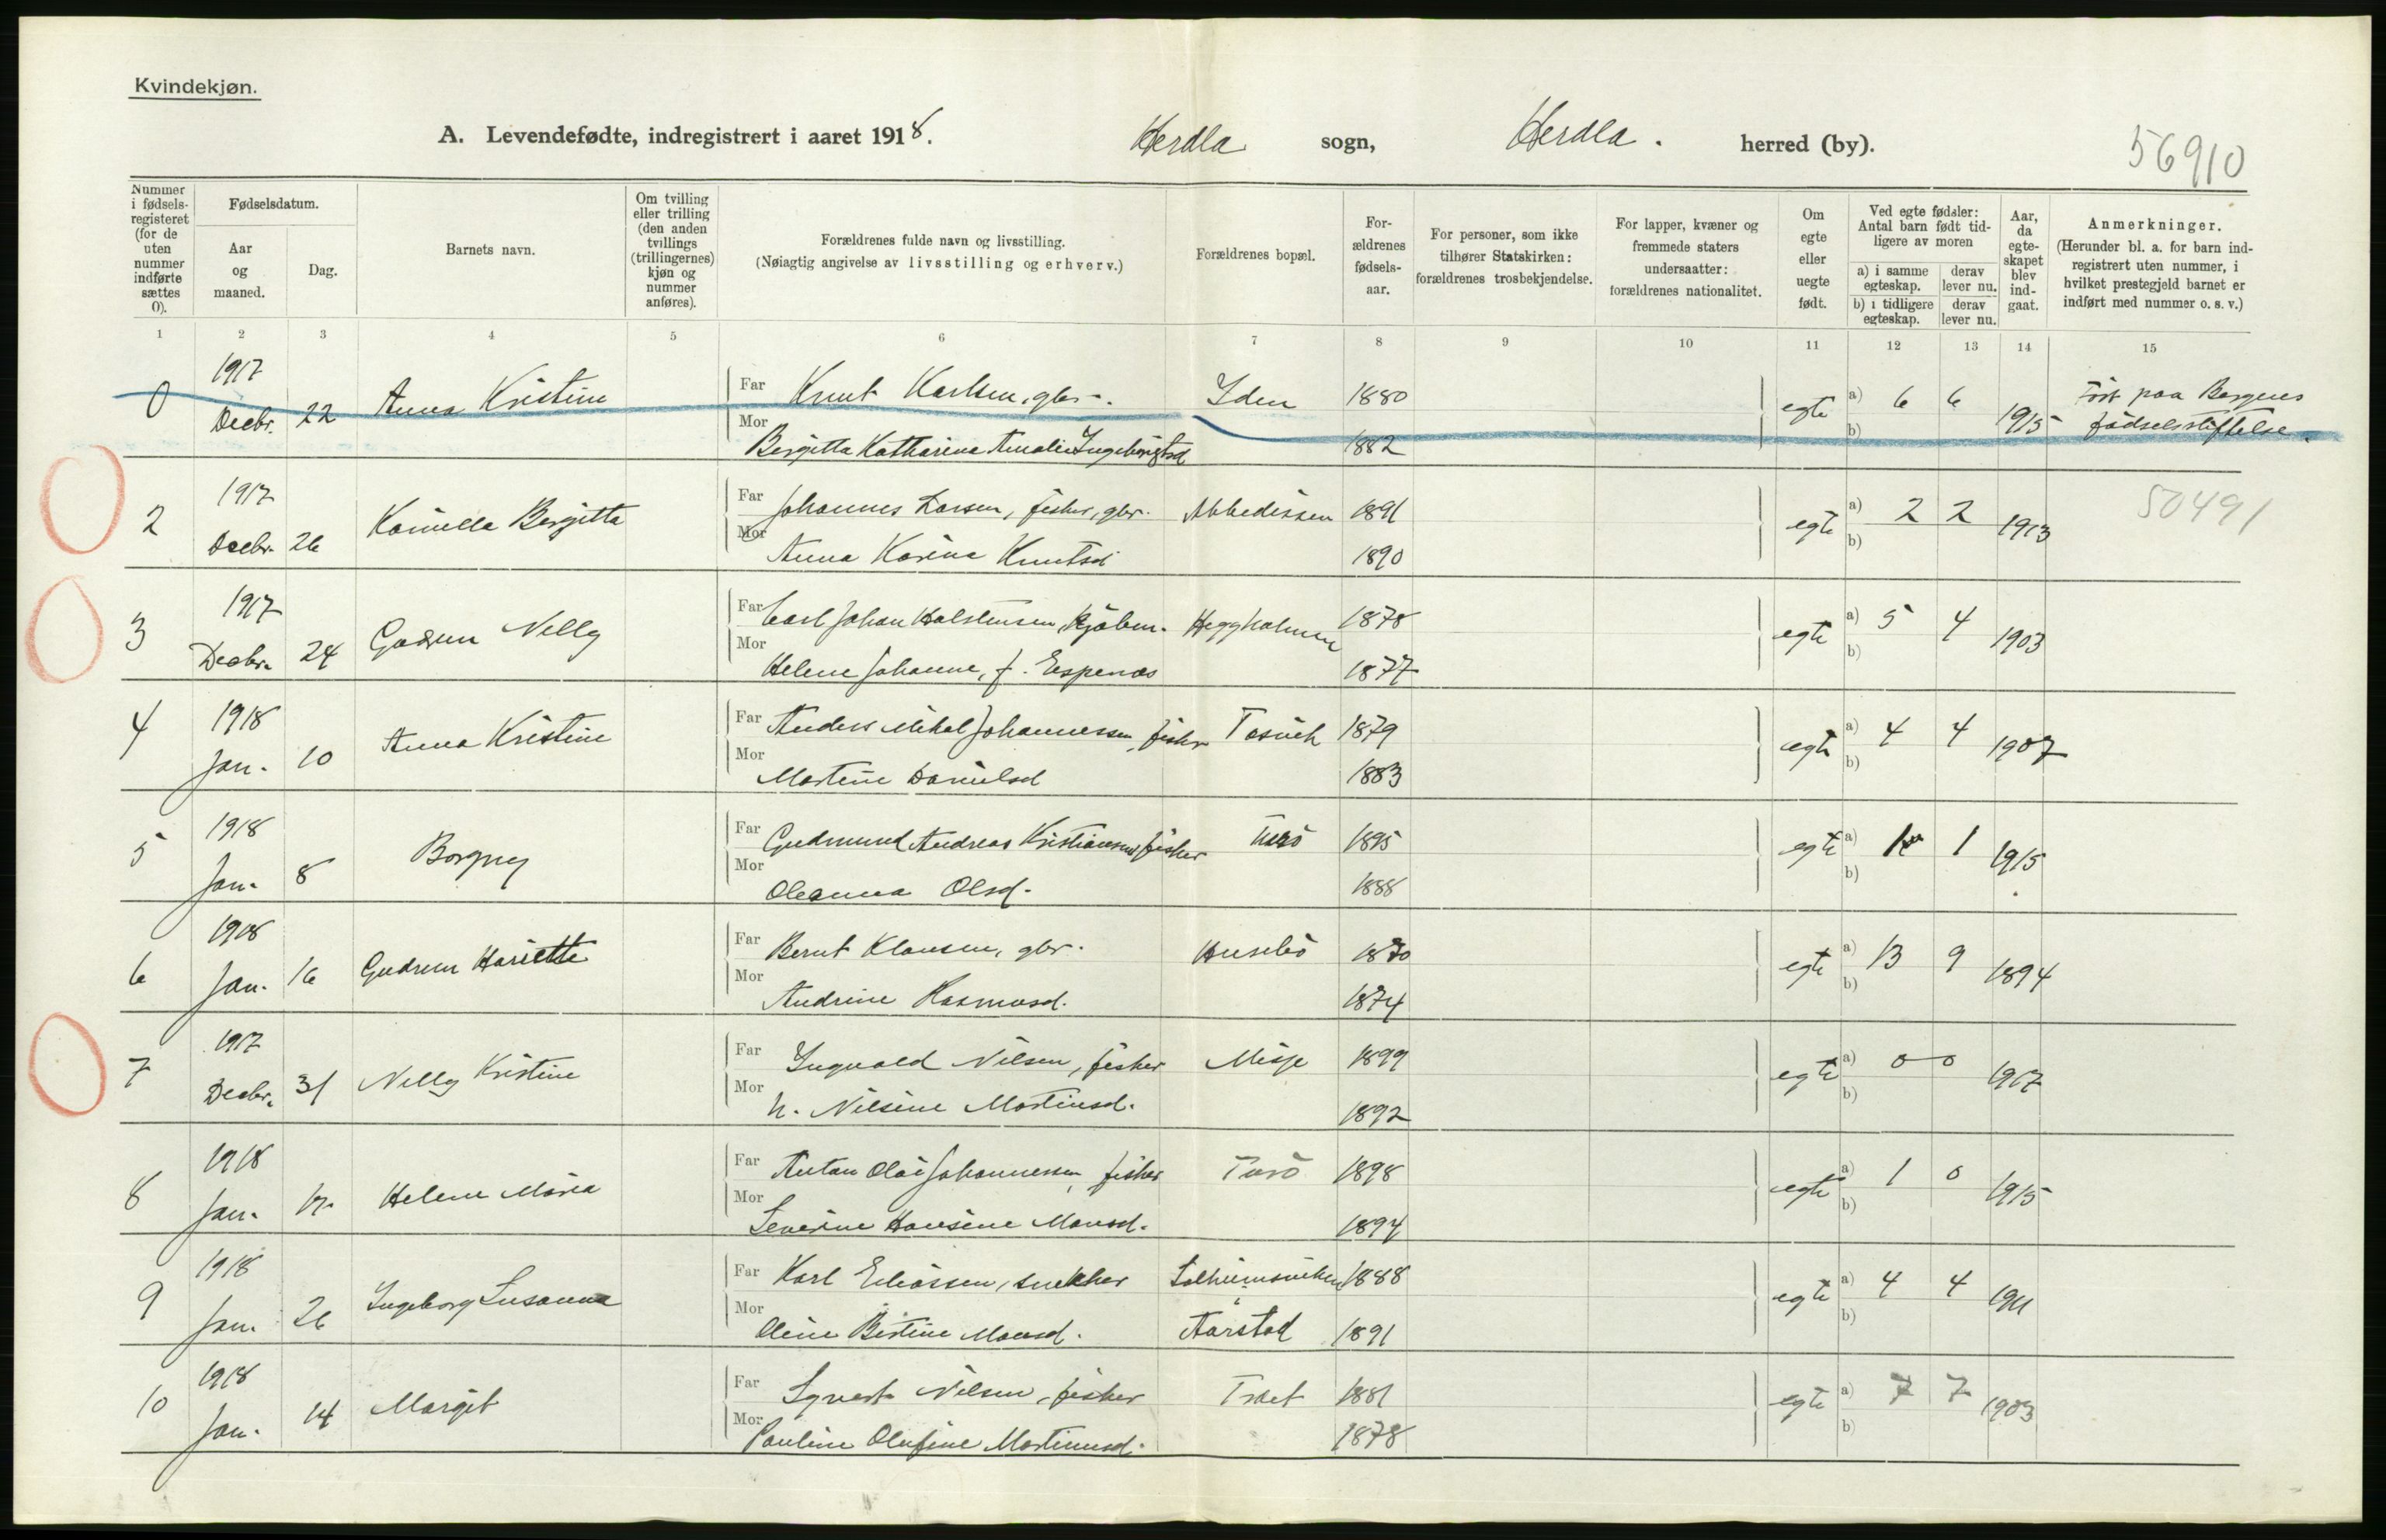 Kvindekjøn.
A. Levendefødte, indregistrert i aaret 1918. Herdla sogn, Herdla. herred (by). 56910
Nummer i fødsels-registeret (for de uten nummer indførte sættes 0).
Fødselsdatum.
Aar og maaned.
Dag.
Barnets navn.
Om tvilling eller trilling (den anden tvillings (trillingernes) kjøn og nummer anføres).
Forældrenes fulde navn og livsstilling.
(Nøiagtig angivelse av livsstilling og erhverv.)
Forældrenes bopæl.
For-ældrenes fødsels-aar.
For personer, som ikke tilhører Statskirken: forældrenes trosbekjendelse.
For lapper, kvæner og fremmede staters undersaatter: forældrenes nationalitet.
Om egte eller uegte født.
Ved egte fødsler: Antal barn født tid-ligere av moren
a) i samme egteskap. derav lever nu.
b) i tidligere egteskap. derav lever nu.
Aar, da egte-skapet blev ind-gaat.
Anmerkninger.
(Herunder bl. a. for barn ind-registrert uten nummer, i hvilket prestegjeld barnet er indført med nummer o. s. v.)
1 2 3 4 5 6 7 8 9 10 11 12 13 14 15
1917
0 Decbr. 22 Anna Kristine Far Knut Karlsen, gbr. 1880 egte a) 6 6 1915 paa Bergens
Mor Bergitta Katharina Amalie Ingebrigtsd 1882 b) fødselsstiftelse.
1917
2 Decbr. 26 Kamilla Bergitta Far Johannes Larsen, fisker, gbr. Abbedissen 1891 egte a) 2 2 1913 50491
Mor Anna Karina Knutsd 1890 b)
1917
3 Decbr. 24 Gudrun Nelly Far Carl Johan Halstensen, kjøbm. Heggholmen 1878 egte a) 5 4 1903
Mor Helene Johanne, f. Espenes 1877 b)
1918
4 Jan. 10 Anna Kristine Far Anders Mikal Johannessen, fisker 1879 egte a) 4 4 1907
Mor Martine Danielsd 1883 b)
1918
5 Jan. 8 Borgny Far Gudmund Andreas Kristiansen, fisker Turø 1895 egte a) 1 1 1915
Mor Oleanna Olsd. 1888 b)
1918
6 Jan. 16 Gudrun Hariette Far Bernt Klausen, gbr. Husebø 1870 egte a) 13 9 1894
Mor Andrine Rasmusd. 1874 b)
1917
7 Decbr. 31 Nelly Kristine Far Ingvald Nilsen, fisker Misje 1899 egte a) 0 0 1917
Mor N. Nilsine Martinsd. 1892 b)
1918
8 Jan. Helene Maria Far Anton Olai Johannessen, fisker Turø 1898 egte a) 1 0 1915
Mor Severine Hansine Monsd. 1894 b)
1918
9 Jan. 26 Ingeborg Susanna Far Karl Eliassen, snekker Solheimsviken 1888 egte a) 4 4 1911
Mor Oline Bertine Monsd. Aarstad 1891 b)
1918
10 Jan. 14 Margit Far Syvert Nilsen, fisker Træt 1881 egte a) 7 7 1903
Mor Pauline Olufine Martinusd. 1878 b)